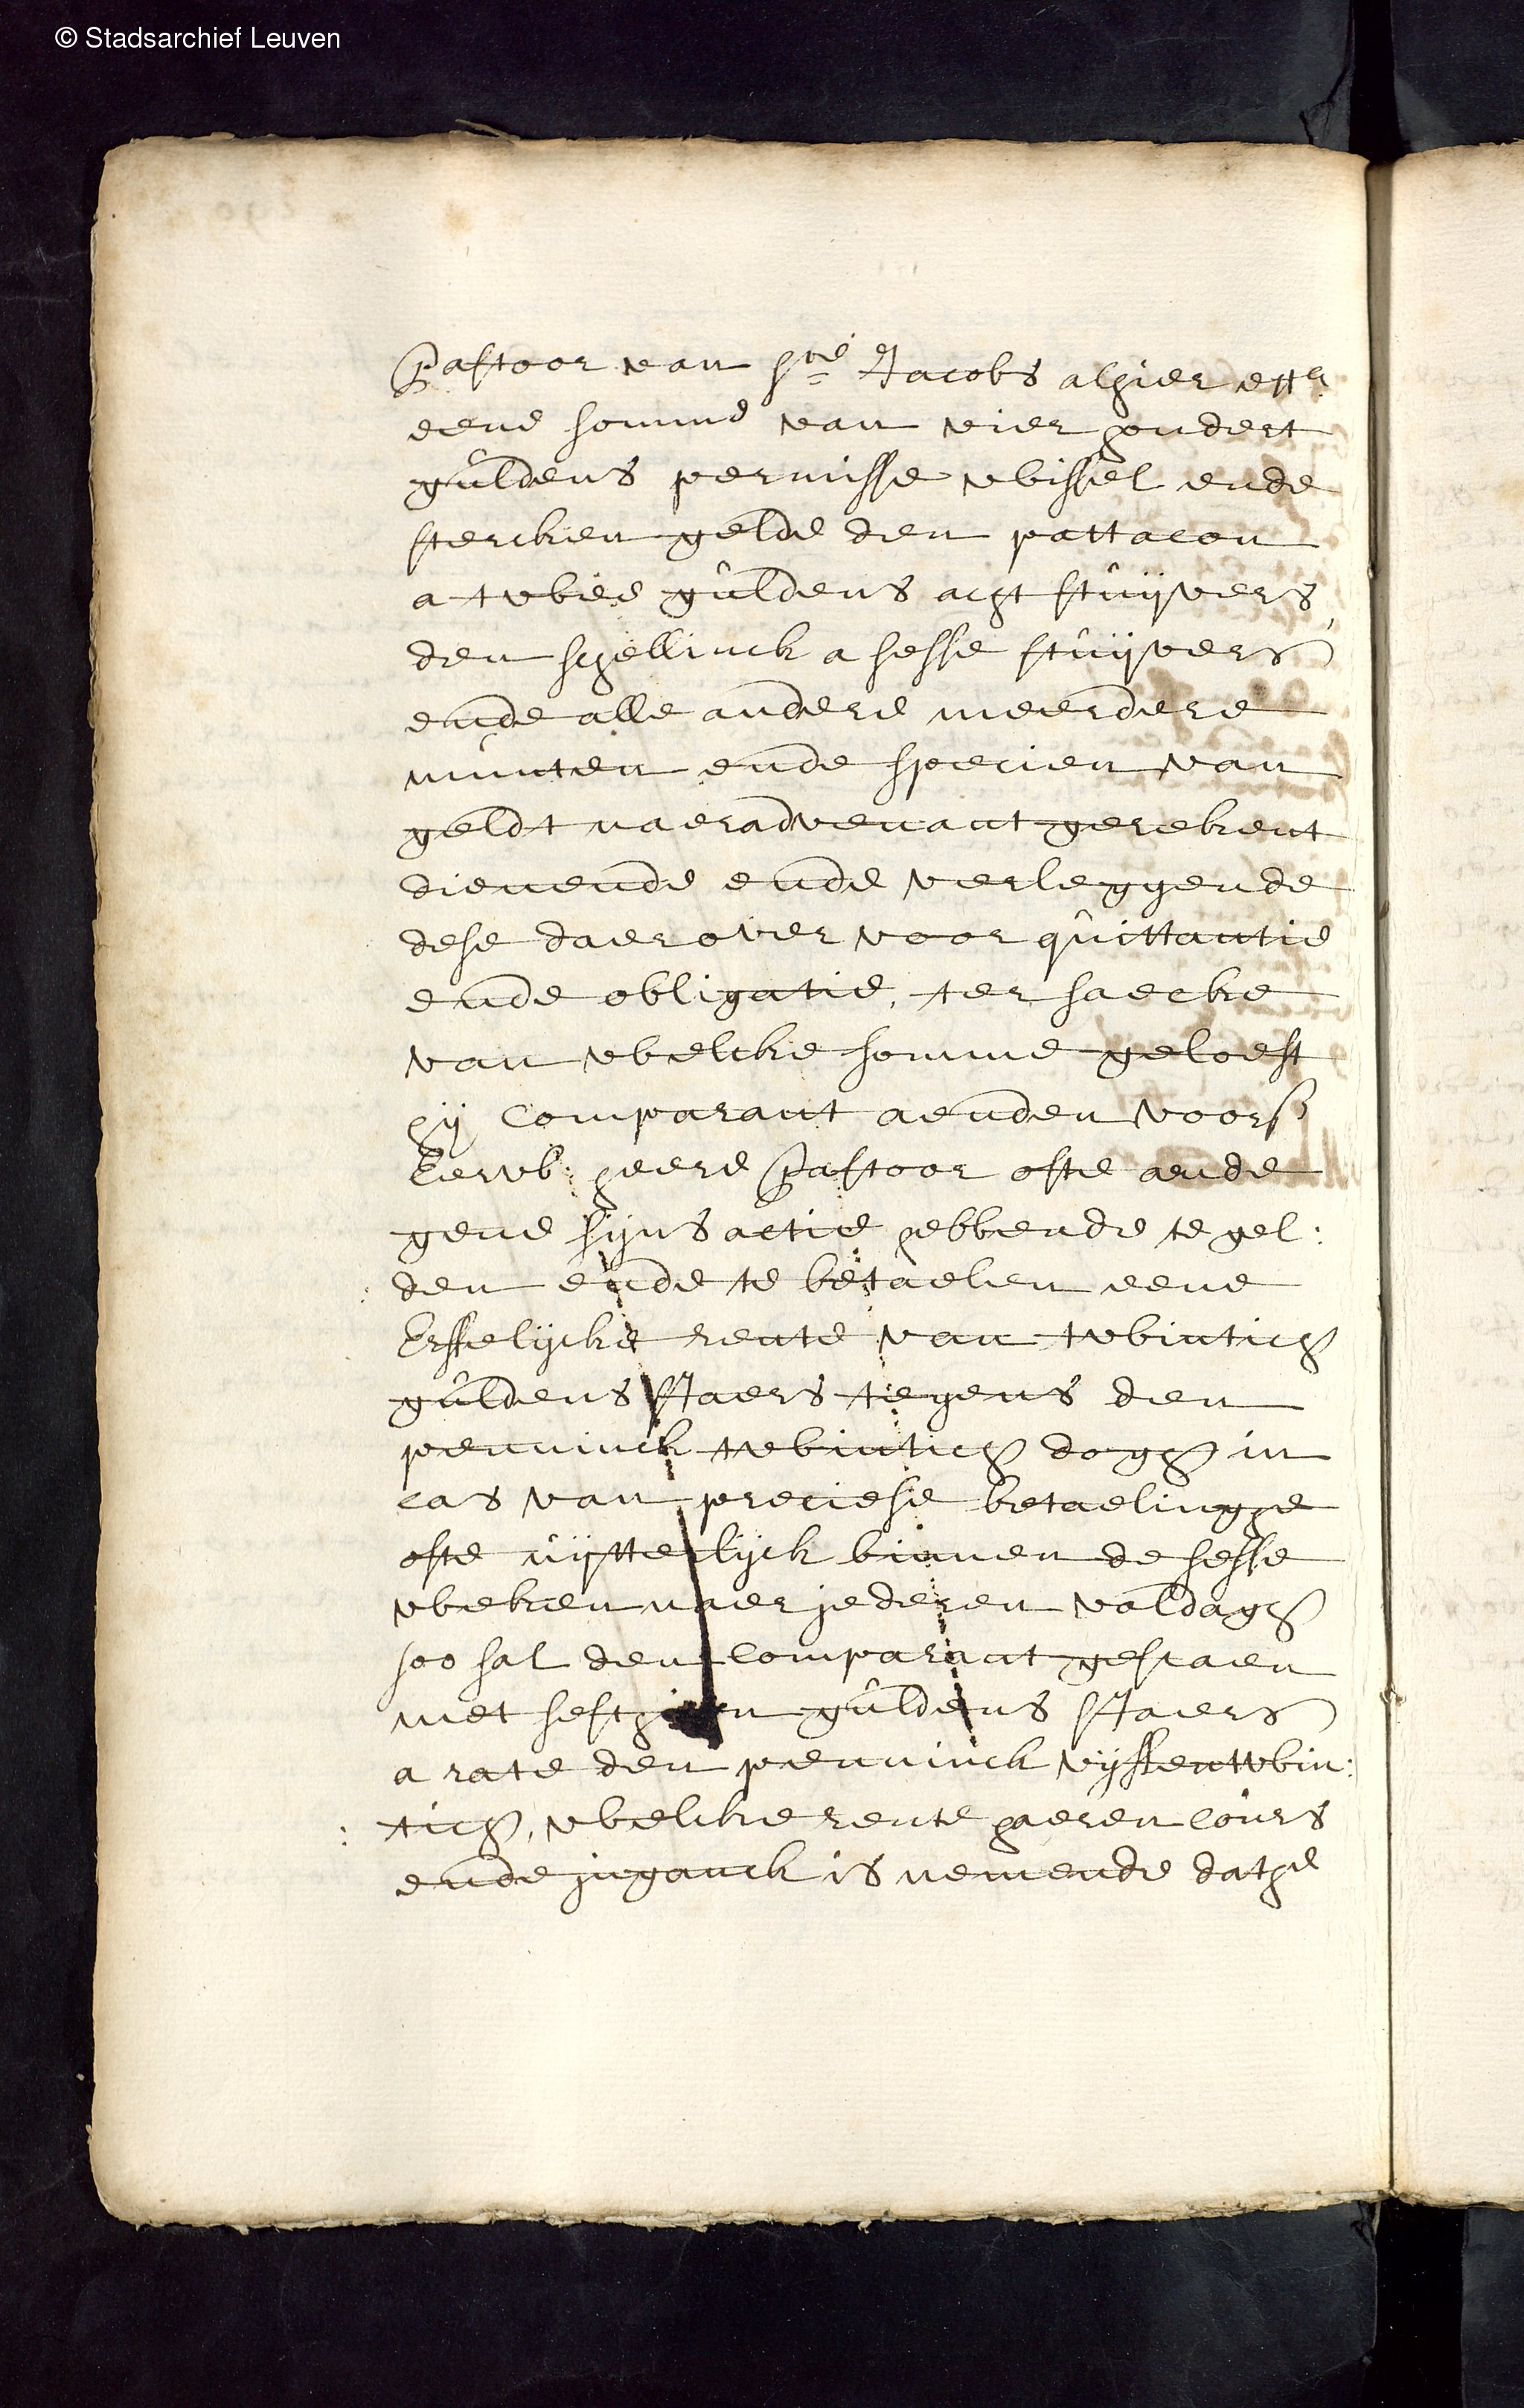 © Stadsarchief Leuven
Pastoor van ste Jacobs alhier etta
eene somme van vier hondert
guldens permissie wissel ende
stercken gelde den pattacon
a twee guldens acht stuijvers,
den schellinck a sesse stuijvers
ende alle andere meerdere
munten ende specien van
geldt naer advenant gerekent
dienende ende verleggende
dese daer over voor quittantie
ende obligatie, ter saecke
van welcke somme geloeft
hij comparant aenden voors
Eerw: heere Pastoor ofte aende
gene sijns actie hebbende te gel:
den ende te betaelen eene
erffelijcke rente van twintich
guldens sJaers tegens den
penninck twintich dogh in
cas van preciese betaelinghe
ofte uijtterlijck binnen de sesse
weken naer jederen valdagh
soo sal den comparant gestaen
met sesthien guldens sJaers
a rate den penninck vijffentwin:
tich, welcke rente haeren cours
ende inganck is nemende dathe